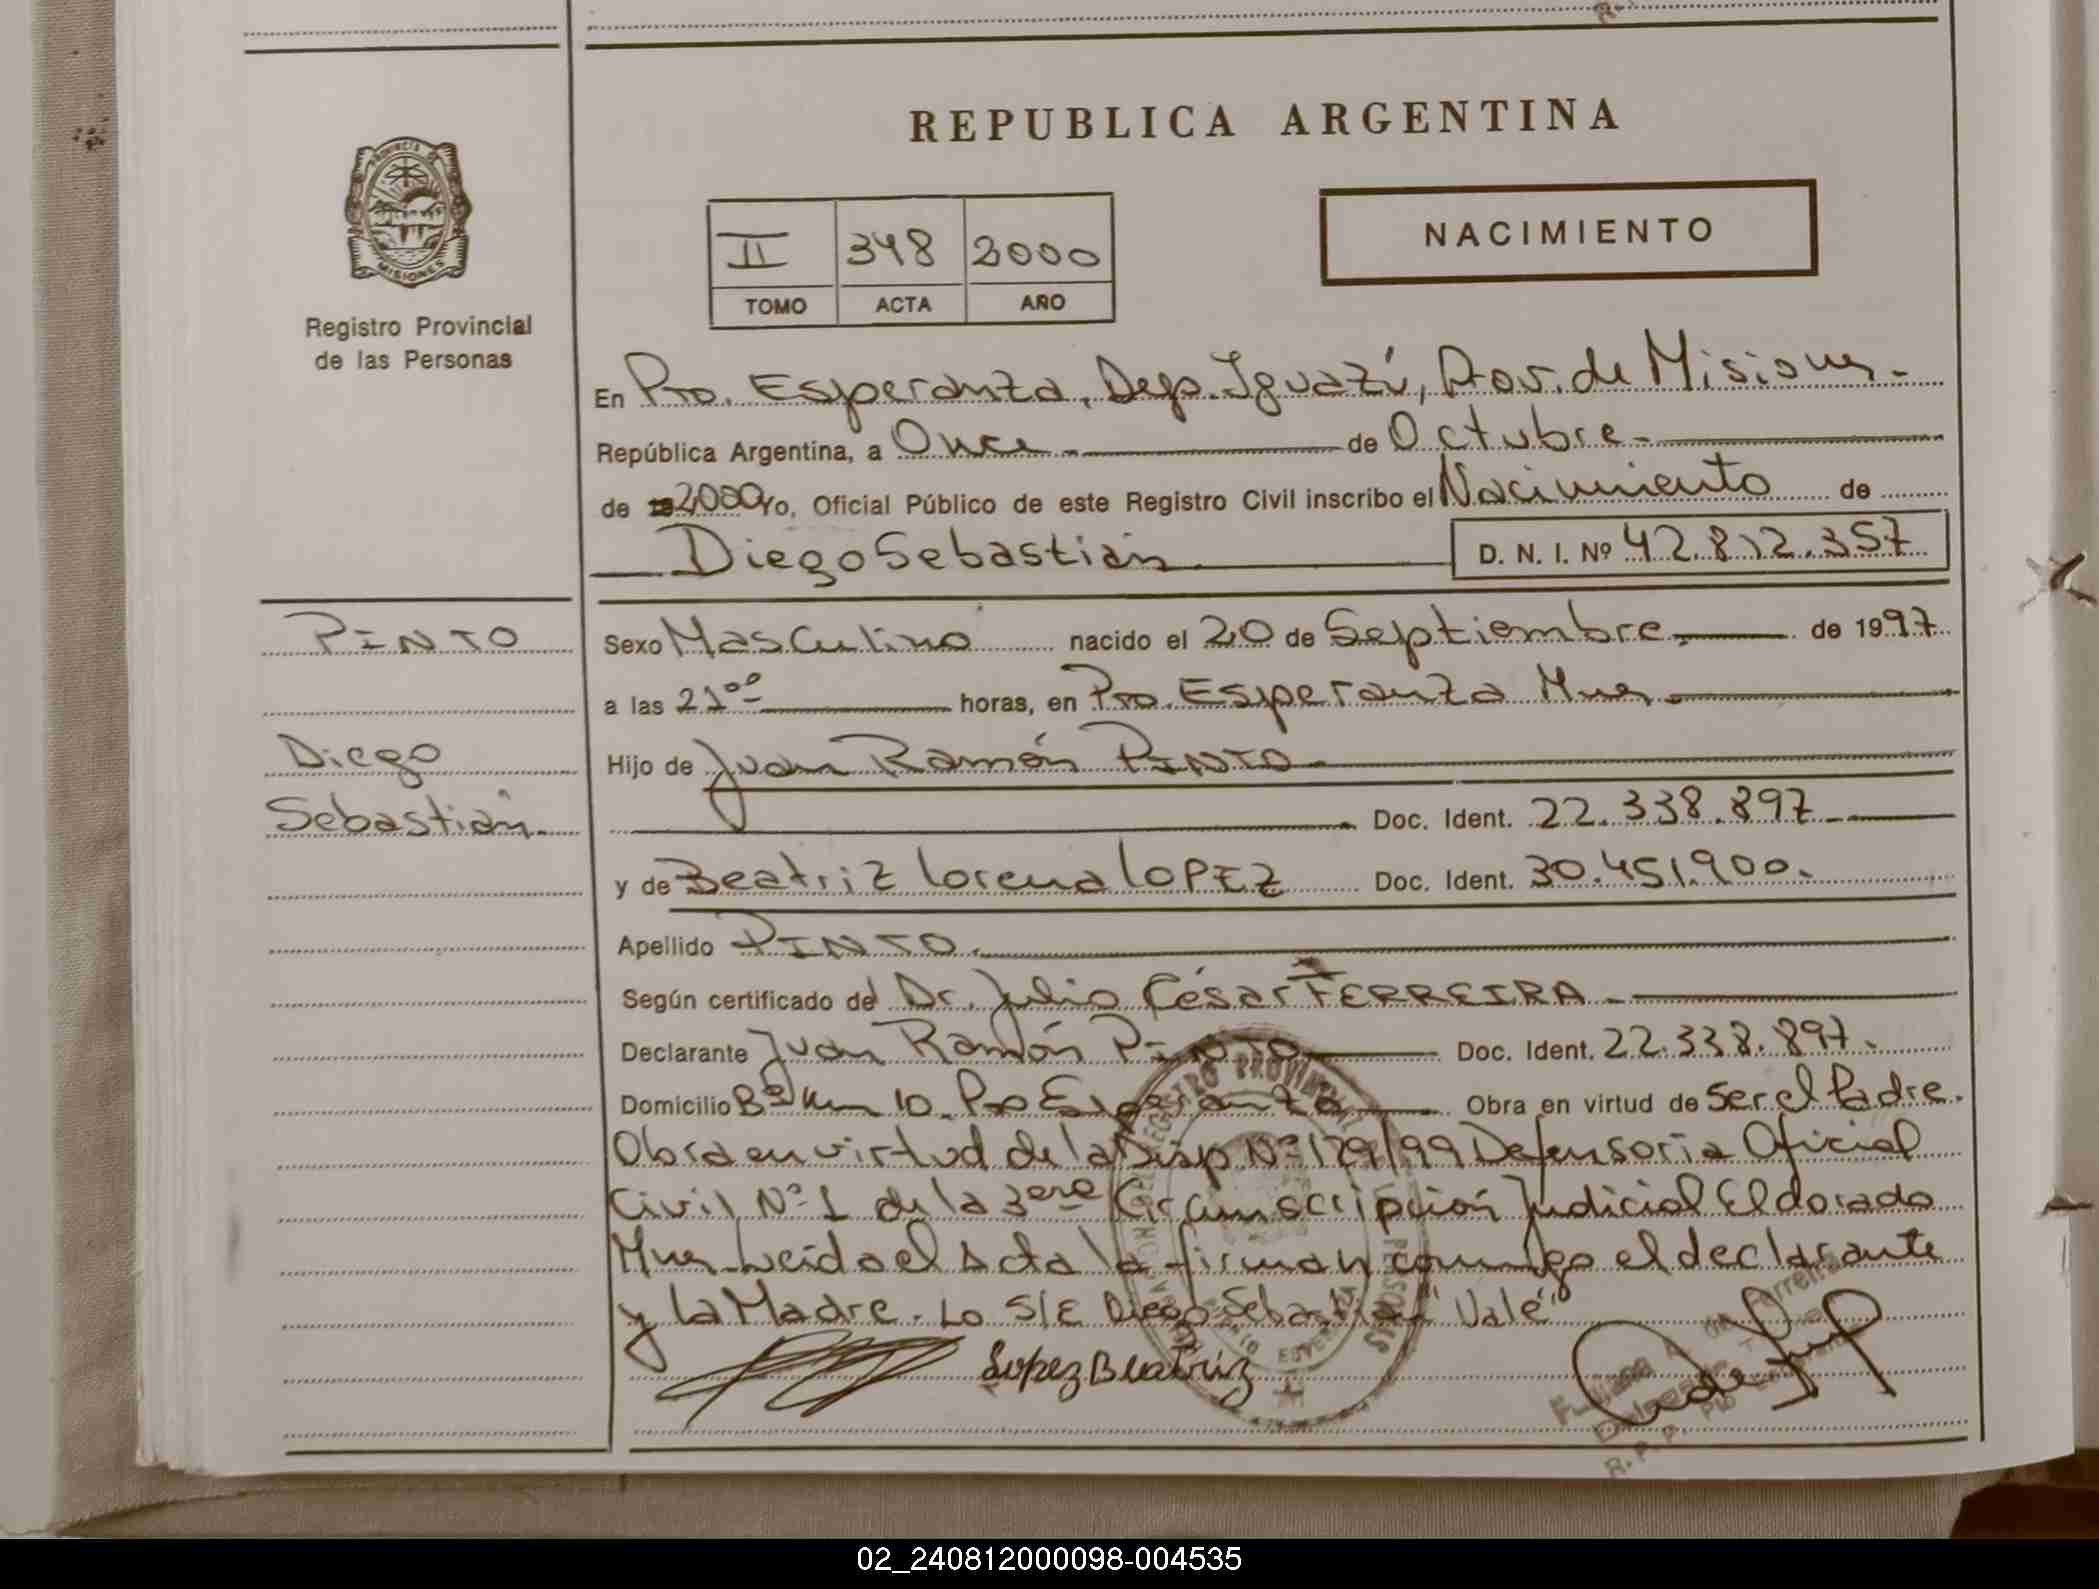 REPUBLICA ARGENTINA
PROVINCIA DE
MISIONES
Registro Provincial
de las Personas
II 348 2000
TOMO ACTA AÑO
NACIMIENTO
En Pto. Esperanza, Dep. Iguazú, Prov. de Misiones.-
República Argentina, a Once de Octubre.-
de 2000 Yo, Oficial Público de este Registro Civil inscribo el Nacimiento de
Diego Sebastián D. N. I. Nº 42.812.357
PINTO
Diego
Sebastián.
Sexo Masculino nacido el 20 de Septiembre. de 1997
a las 21ºº horas, en Pto. Esperanza Mnes.
Hijo de Juan Ramón PINTO
Doc. Ident. 22.338.897
y de Beatriz Lorena LOPEZ Doc. Ident. 30.451.900.
Apellido PINTO.
Según certificado del Dr. Julio César FERREIRA.
Declarante Juan Ramón PINTO Doc. Ident. 22.338.897.
Domicilio Bº Km 10. Pto Esperanza Obra en virtud de Ser el Padre.
Obra en virtud de la Disp. Nº 179/99 Defensoria Oficial
Civil Nº 1 de la 3era Circunscripción Judicial Eldorado
Mnes. Leida el Acta la firman conmigo el declarante
y la Madre. Lo S/E Diego Sebastián "Vale"
Lopez Beatriz
REGISTRO PROVINCIAL
R. P. P.
02_240812000098-004535